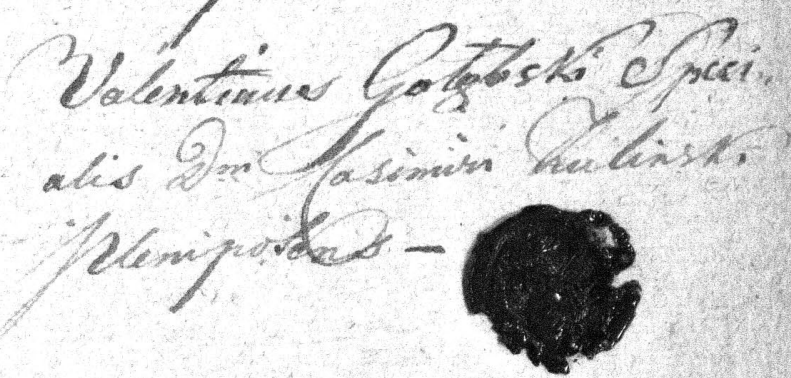 Valentinus Gołębski Speci„
alis Dni Casimiri Zielinski
plenipotens —